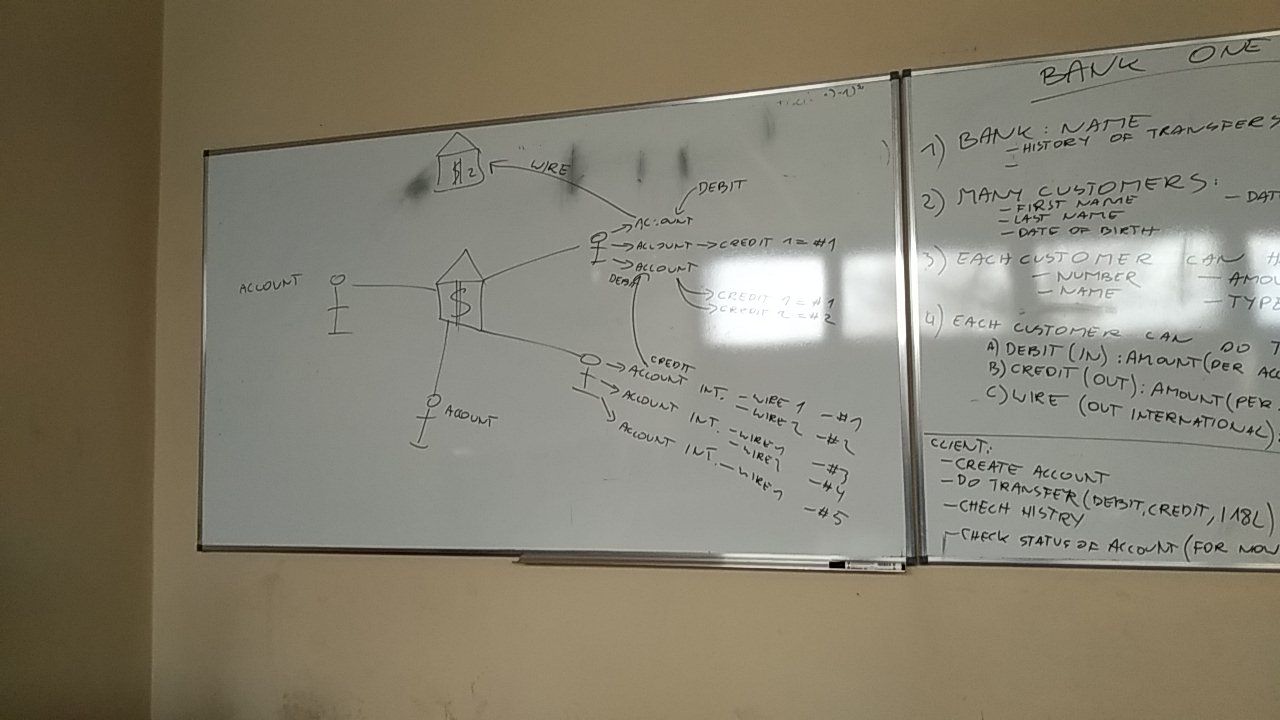 $ 2
WIRE
DEBIT
ACCOUNT
ACCOUNT → CREDIT 1 = #1
ACCOUNT
DEBIT
CREDIT 1 = #1
CREDIT 2 = #2
ACCOUNT
$
ACCOUNT
CREDIT
ACCOUNT INT. - WIRE 1 - #1
- WIRE 2 - #2
ACCOUNT INT. - WIRE 1 - #3
- WIRE 2 - #4
ACCOUNT INT. - WIRE 1 - #5
BANK ONE
1) BANK: NAME
- HISTORY OF TRANSFERS
-
2) MANY CUSTOMERS:
- FIRST NAME - DAT
- LAST NAME
- DATE OF BIRTH
3) EACH CUSTOMER CAN H
- NUMBER - AMOU
- NAME - TYPE
4) EACH CUSTOMER CAN DO T
A) DEBIT (IN) : AMOUNT (PER ACC
B) CREDIT (OUT) : AMOUNT (PER
C) WIRE (OUT INTERNATIONAL) :
CLIENT:
- CREATE ACCOUNT
- DO TRANSFER (DEBIT, CREDIT,
- CHECH HISTRY
- CHECK STATUS OF ACCOUNT (FOR NOW